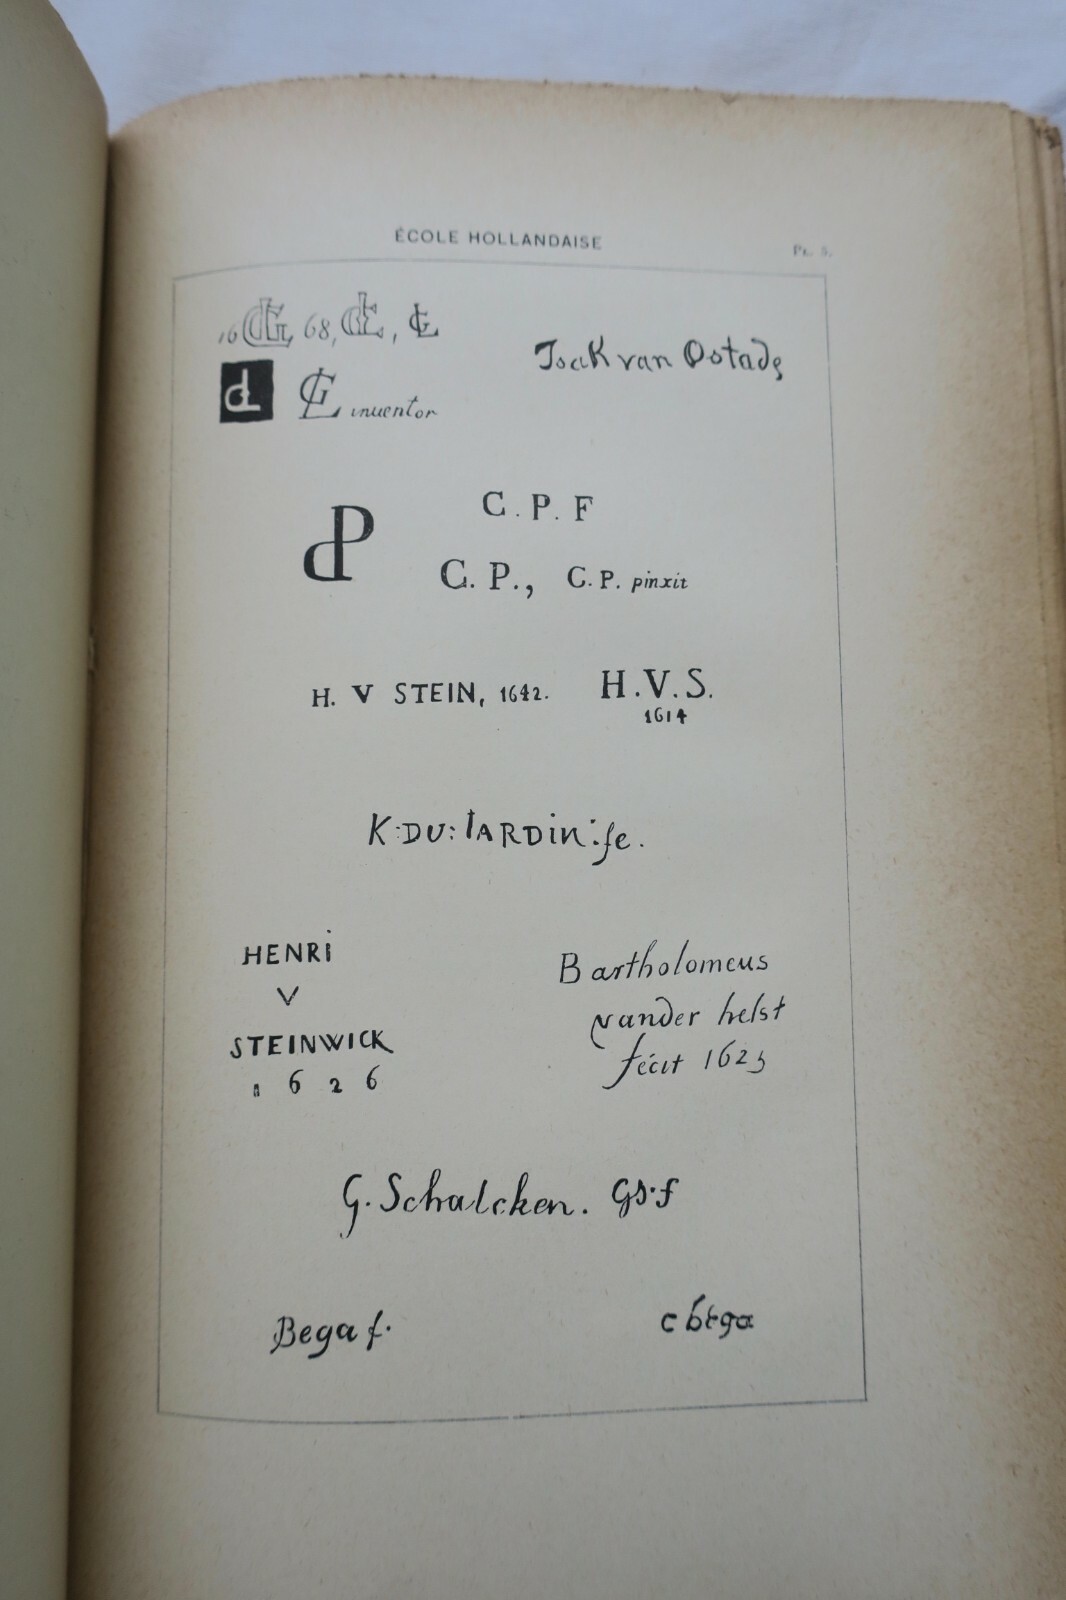 ÉCOLE HOLLANDAISE
PL. 5.
16 GL, 68, GL, GL
Isack van Ostade
dL GL inuentor
CP
C. P. F
C. P., C. P. pinxit
H. V STEIN, 1642. H.V.S.
1614
K:DU:IARDIN:fe.
HENRI
V
STEINWICK
1626
Bartholomeus
vander helst
fécit 1623
G. Schalcken. GS.f
Bega f.
c bega